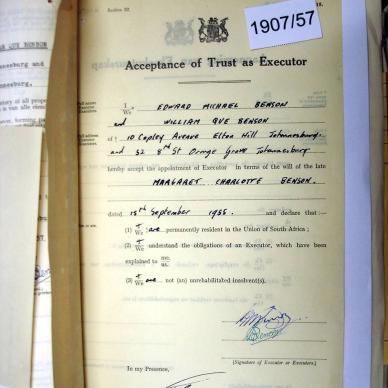 Section 32.
1907/57
Acceptance of Trust as Executor
I
We EDWARD MICHAEL BENSON
and WILLIAM QUE BENSON
of 10 Copley Avenue Elton Hill Johannesburg.
and 52 8th St Orange Grove Johannesburg
hereby accept the appointment of Executor in terms of the will of the late
MARGARET CHARLOTTE BENSON.
dated 15th September 1955 and declare that :—
(1) I
We are permanently resident in the Union of South Africa ;
(2) I
We understand the obligations of an Executor, which have been
explained to me.
us.
(3) I
We are not (an) unrehabilitated insolvent(s).
[Signature of Executor or Executors.]
In my Presence,
QUE BENSON
annesburg and
nnesburg,
Full names
Executor
Full address
Executor